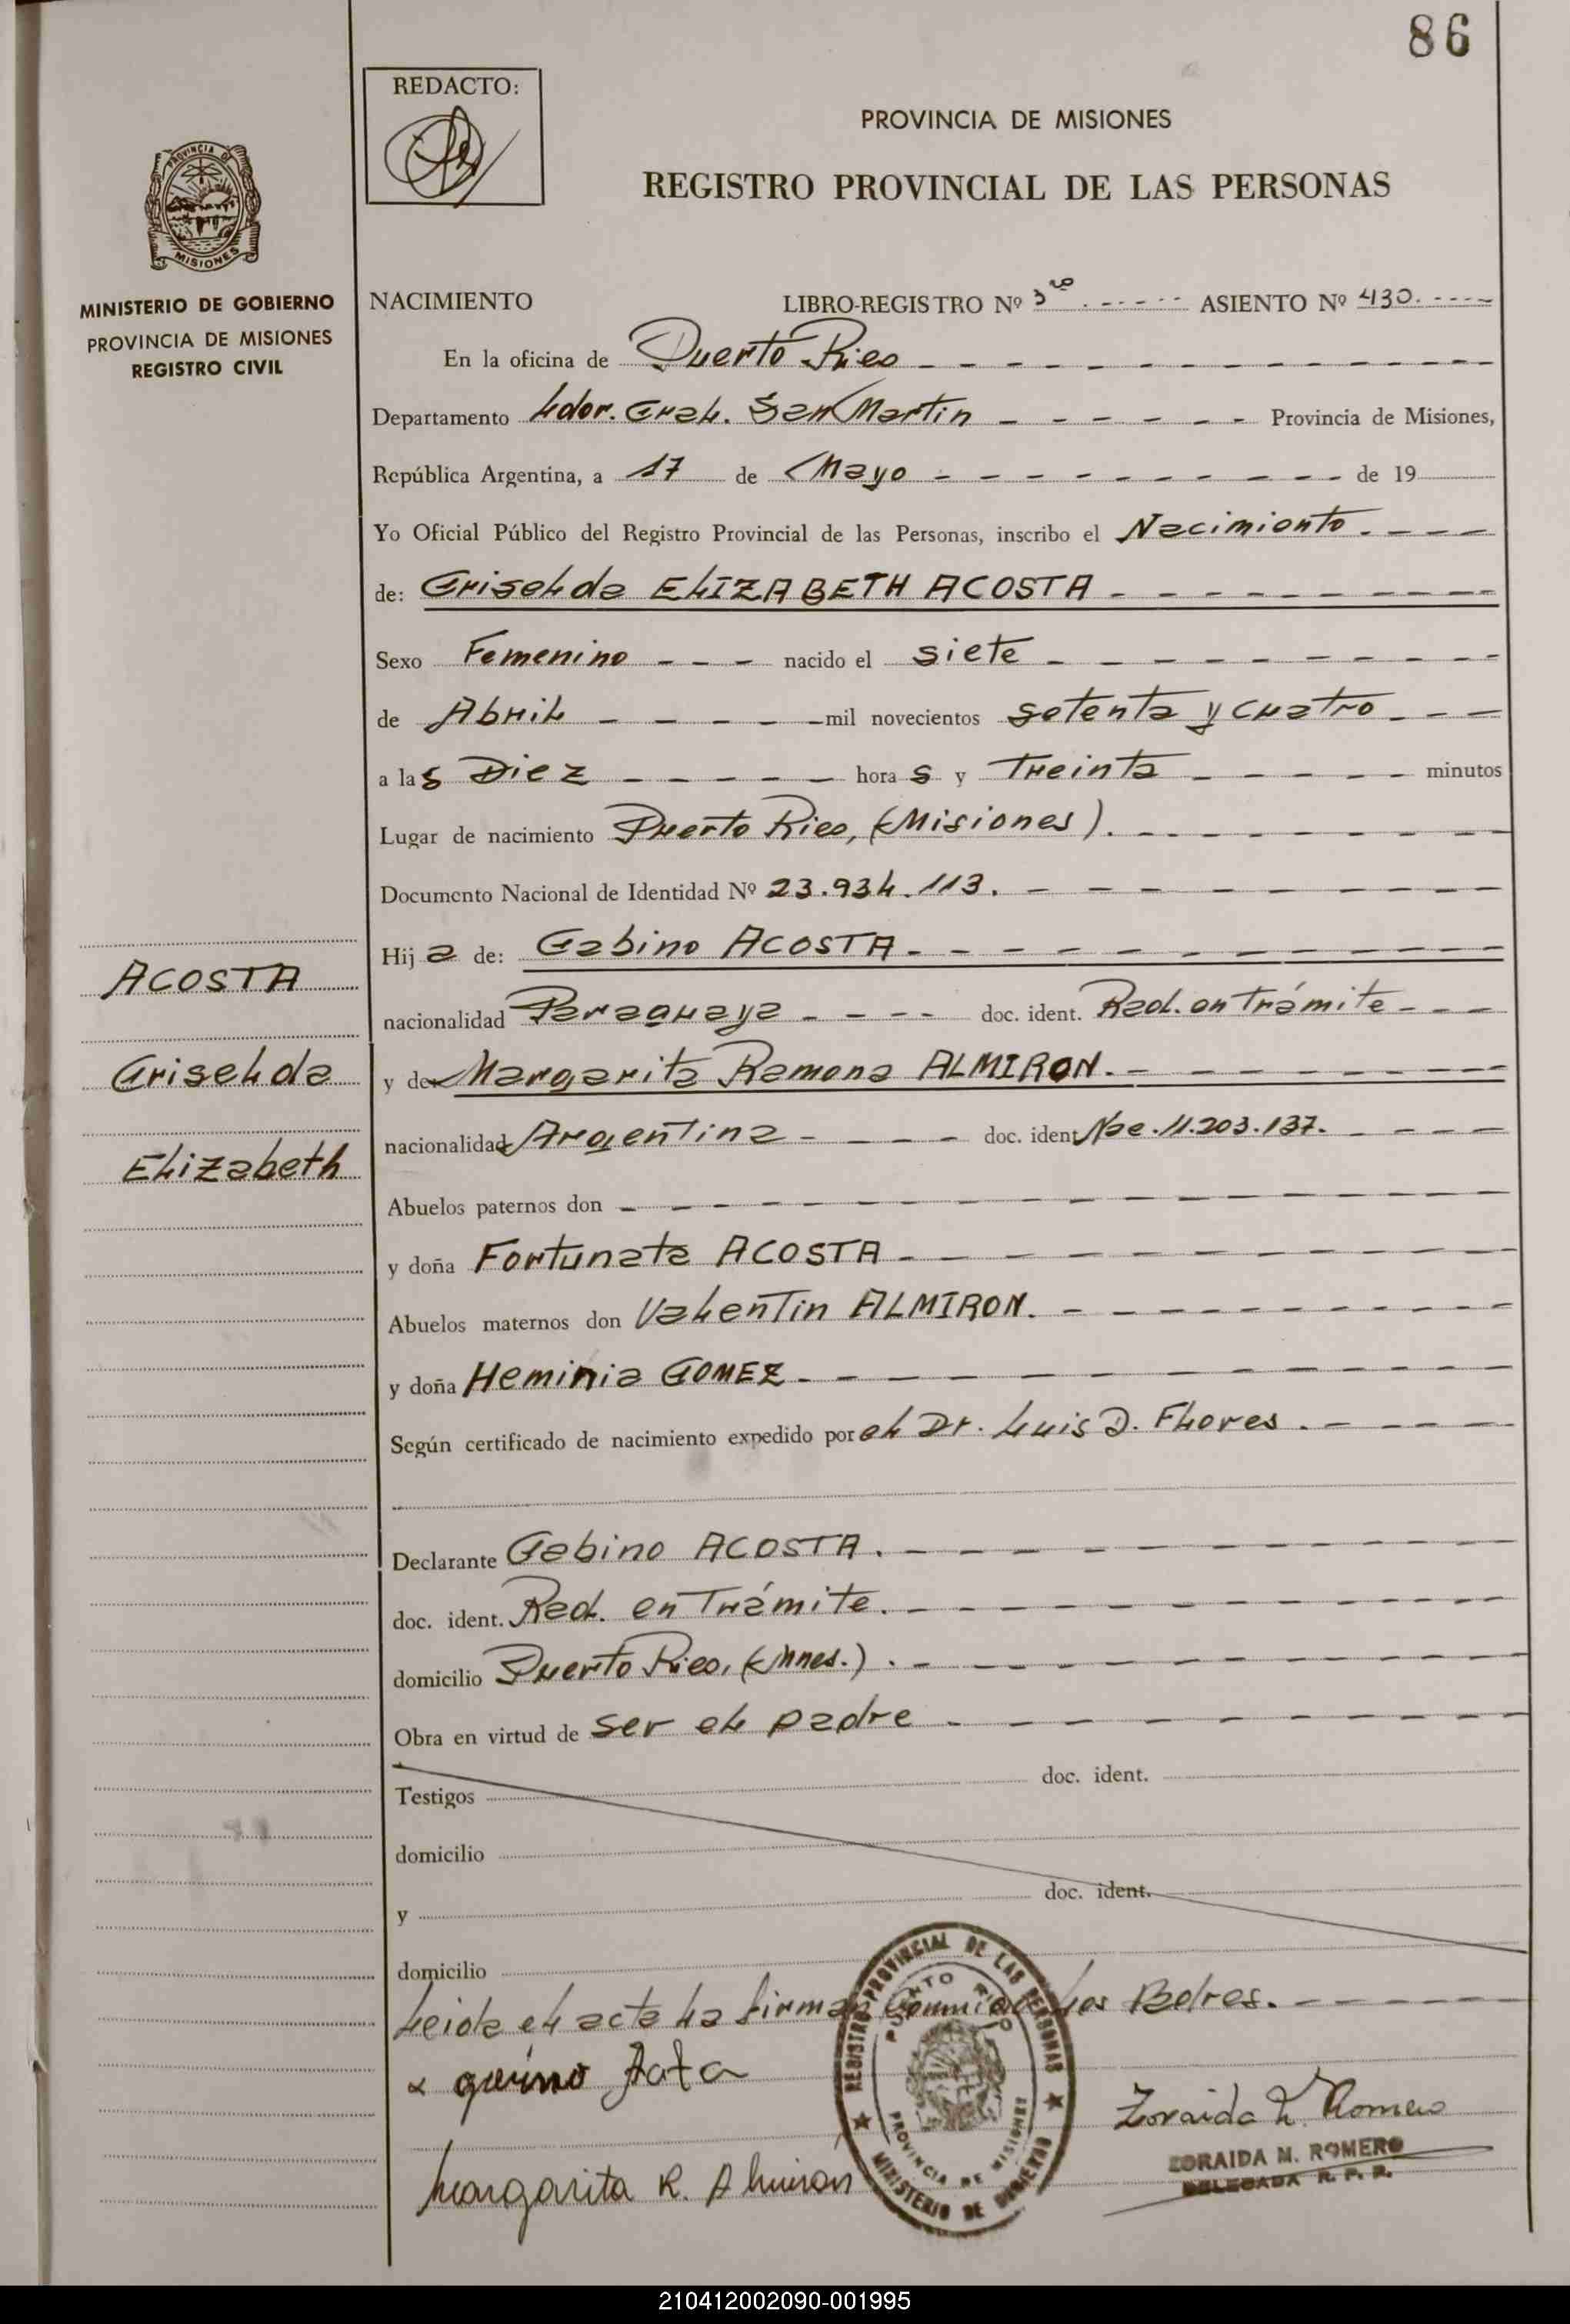 86
REDACTO:
PROVINCIA DE MISIONES
REGISTRO PROVINCIAL DE LAS PERSONAS
PROVINCIA DE
MISIONES
MINISTERIO DE GOBIERNO
PROVINCIA DE MISIONES
REGISTRO CIVIL
NACIMIENTO LIBRO-REGISTRO Nº 3º ASIENTO Nº 430.
En la oficina de Puerto Rico
Departamento Ldor. Gral. San Martin Provincia de Misiones,
República Argentina, a 17 de Mayo de 19
Yo Oficial Público del Registro Provincial de las Personas, inscribo el Nacimiento.
de: Griselda ELIZABETH ACOSTA
Sexo Femenino nacido el siete
de Abril mil novecientos setenta y cuatro
a las Diez horas y Treinta minutos
Lugar de nacimiento Puerto Rico, (Misiones).
Documento Nacional de Identidad Nº 23.934.113.
Hija de: Gabino ACOSTA
nacionalidad Paraguaya doc. ident. Rad. en Trámite
y de Margarita Ramona ALMIRON.
nacionalidad Argentina doc. ident 11.203.137.
Abuelos paternos don
y doña Fortunata ACOSTA
Abuelos maternos don Valentin ALMIRON.
y doña Heminia GOMEZ
Según certificado de nacimiento expedido por el Dr. Luis D. Flores.
Declarante Gabino ACOSTA.
doc. ident. Rad. en Trámite.
domicilio Puerto Rico, (Mnes.).
Obra en virtud de ser el padre
Testigos doc. ident.
domicilio
y doc. ident.
domicilio
Leida el acta la firman Conmigo los
ACOSTA
Griselda
Elizabeth
REGISTRO PROVINCIAL DE LAS PERSONAS
PUERTO RICO
PROVINCIA DE MISIONES
MINISTERIO DE GOBIERNO
Margarita R. Almiron
Zoraida Romero
ZORAIDA M. ROMERO
DELEGADA R. P. P.
210412002090-001995